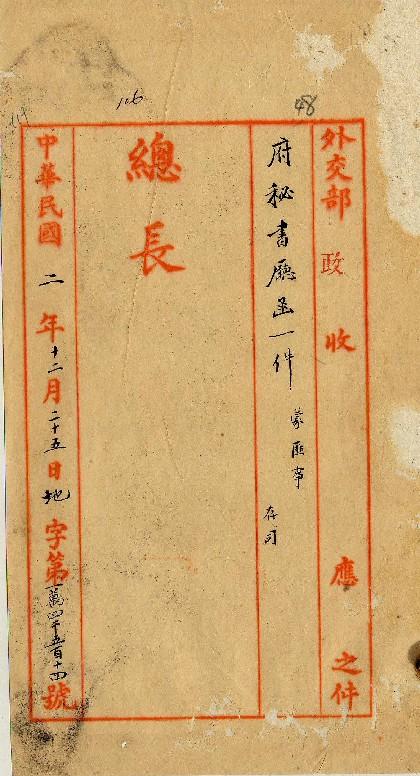 116
48
外交部 政 收 應 之件
府秘書廳函一件 蒙匪事 存司
總長
中華民國 二 年 十二 月 二十五 日 地 字第 一萬四千五百十四 號